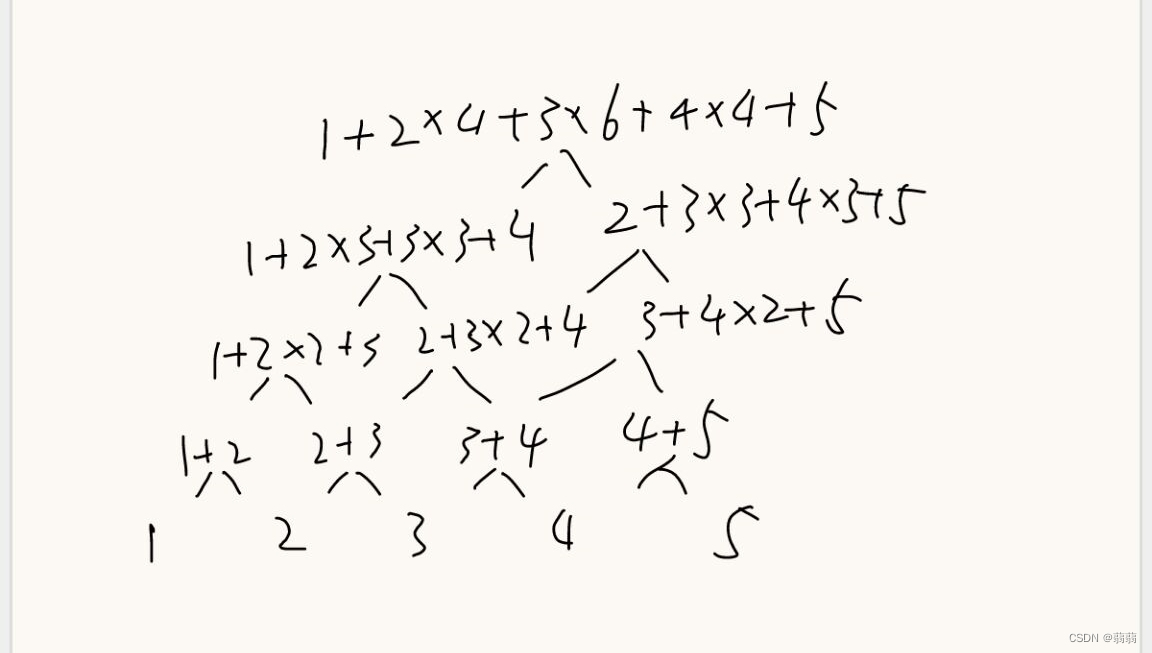 1+2×4+3×6+4×4+5
1+2×3+3×3+4 2+3×3+4×3+5
1+2×2+3 2+3×2+4 3+4×2+5
1+2 2+3 3+4 4+5
1 2 3 4 5
CSDN @蒻蒻